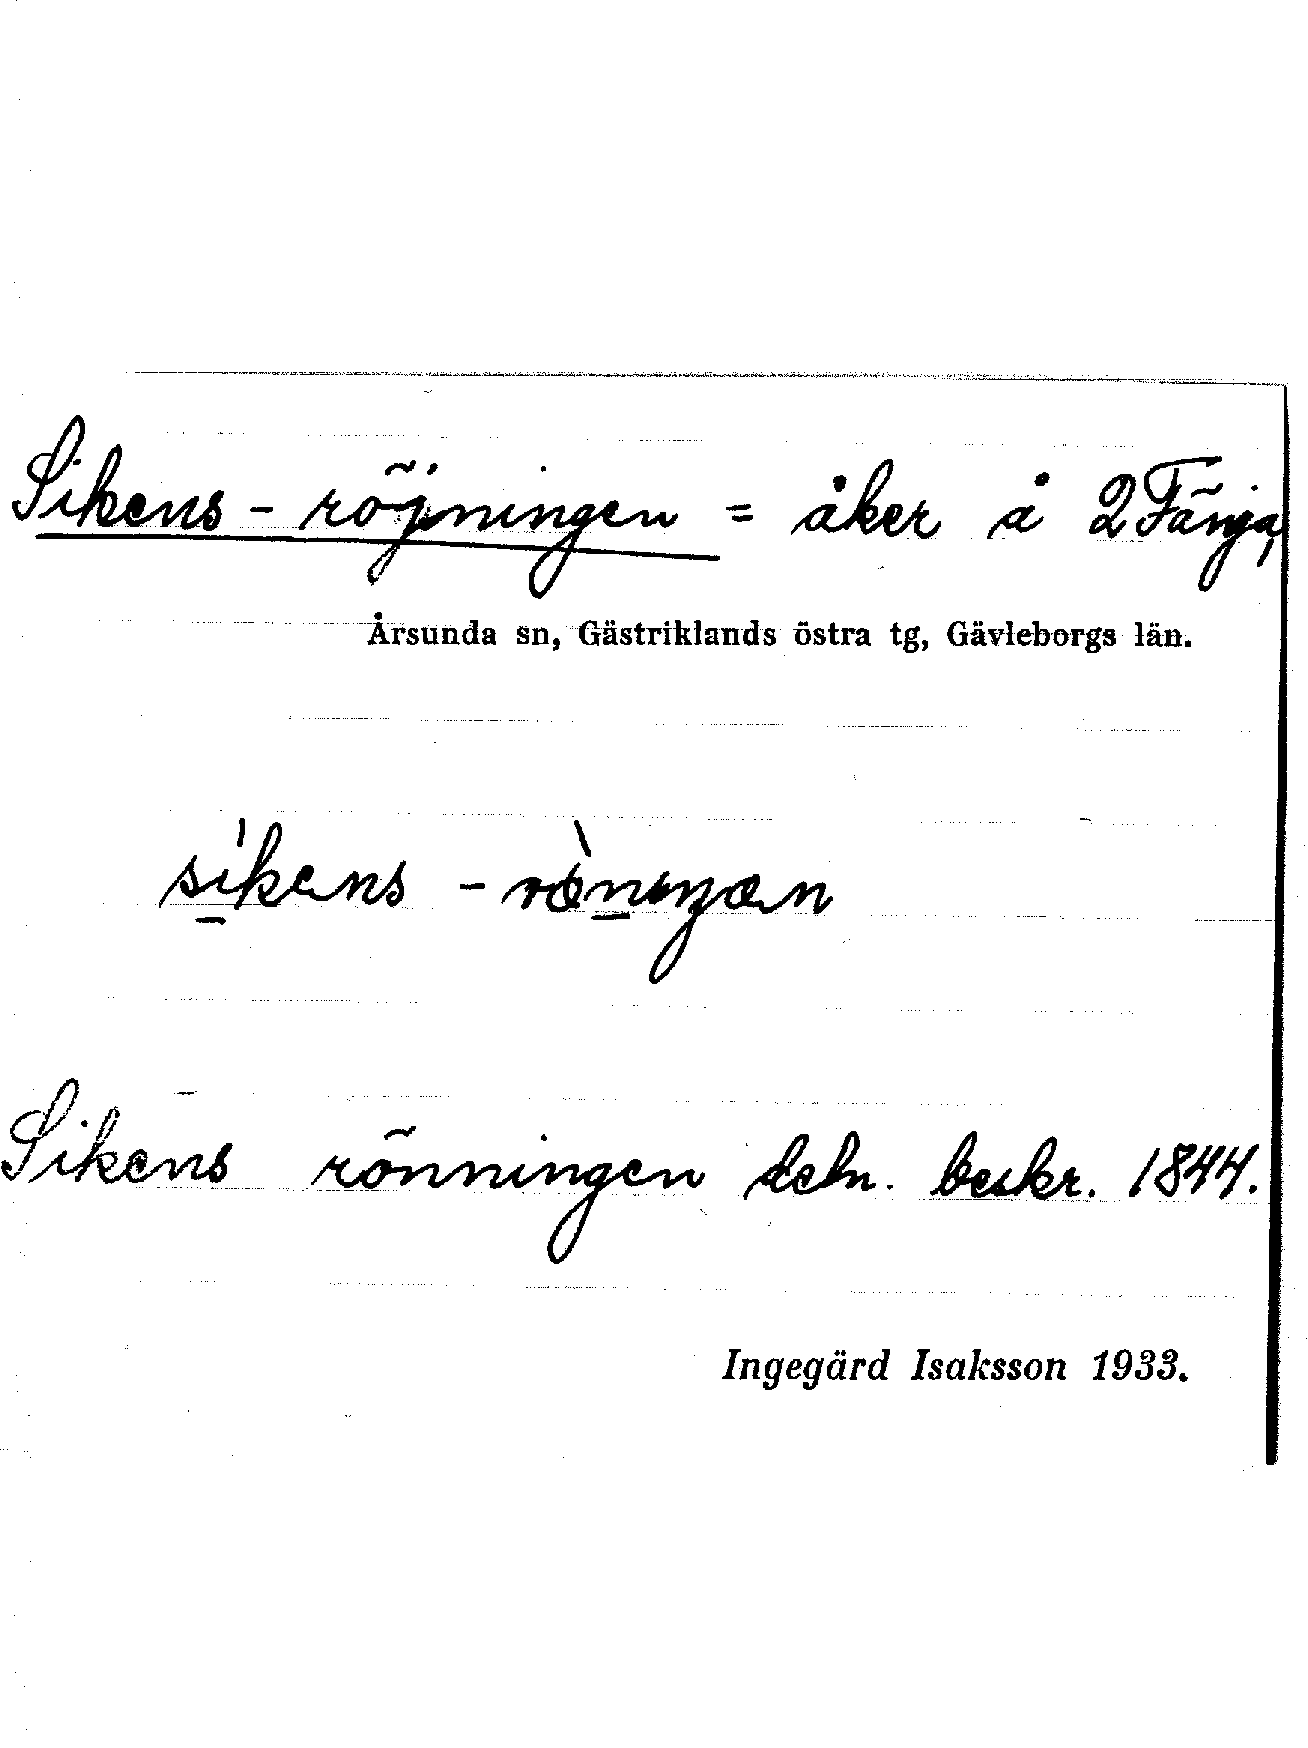 Sikens - röjningen = åker å 2 Fänja,
Årsunda sn, Gästriklands östra tg, Gävleborgs län.
Sikens rönningen deln. beskr. 1844.
Ingegärd Isaksson 1933.